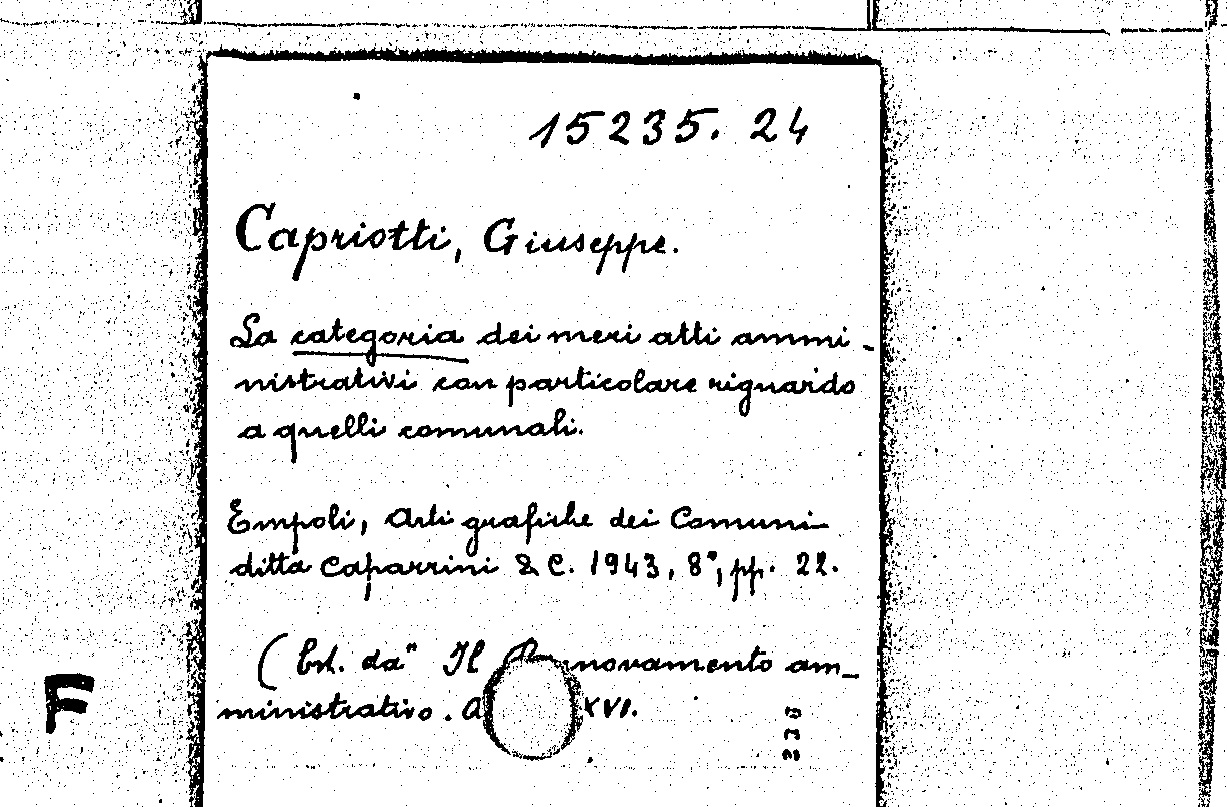 15235. 24
Capriotti, Giuseppe.
La categoria dei meri atti ammi-
nistrativi con particolare riguardo
a quelli comunali.
Empoli, Arti grafiche dei Comuni
ditta Caparrini & C. 1943, 8°, pp. 22.
(Est. da" Il novamento am-
ministrativo. A XVI.
F